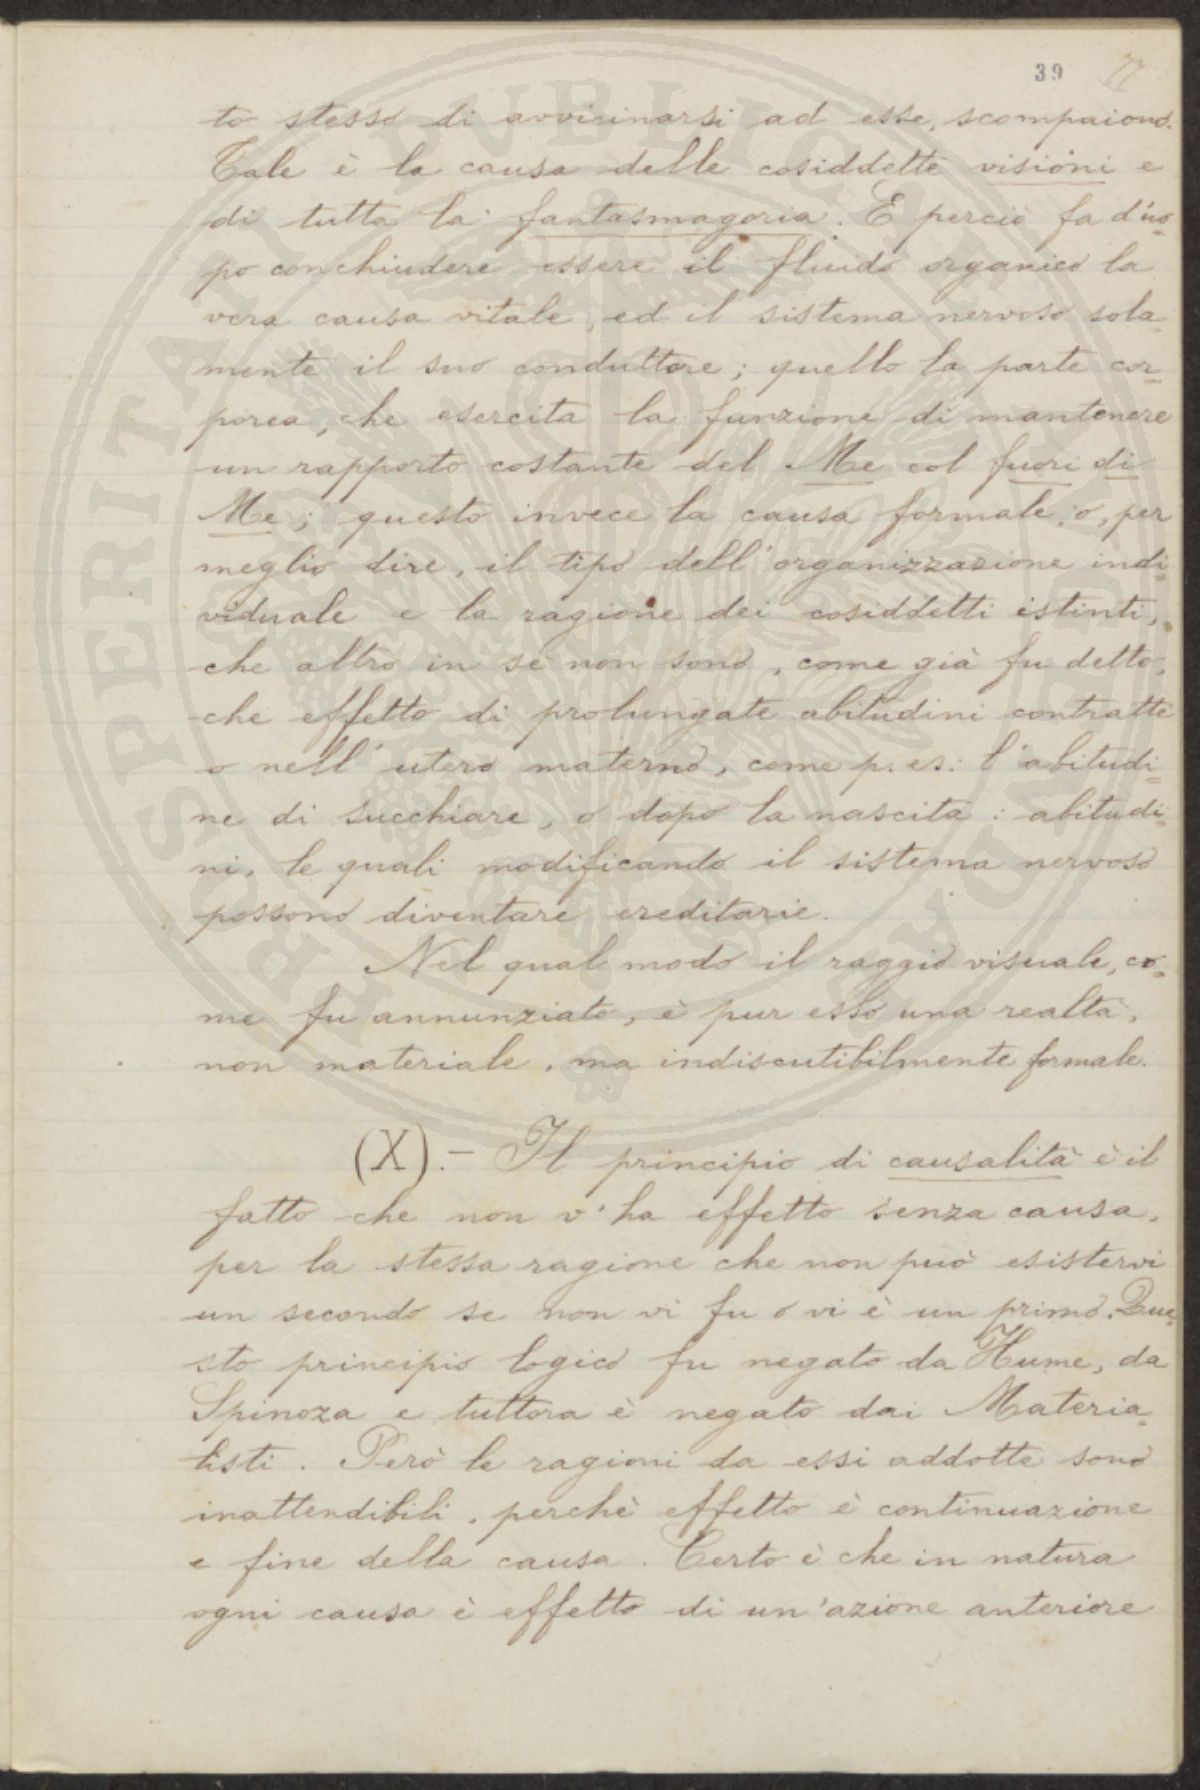 39 77
to stesso di avvicinarsi ad esse, scompaiono.
Tale è la causa delle cosiddette visioni e
di tutta la fantasmagoria. E perciò fa d'uo=
po conchiudere essere il fluido organico la
vera causa vitale, ed il sistema nervoso sola=
mente il suo conduttore; quello la parte cor=
porea, che esercita la funzione di mantenere
un rapporto costante del Me col fuori di
Me; questo invece la causa formale, o, per
meglio dire, il tipo dell'organizzazione indi=
viduale e la ragione dei cosiddetti istinti,
che altro in sè non sono, come già fu detto,
che effetto di prolungate abitudini contratte
o nell'utero materno, come p. es: l'abitudi=
ne di succhiare, o dopo la nascita: abitudi=
ni, le quali modificando il sistema nervoso
possono diventare ereditarie.
Nel qual modo il raggio visuale, co=
me fu annunziato, è pur esso una realtà,
non materiale, ma indiscutibilmente formale.
(X).- Il principio di causalità è il
fatto che non v'ha effetto senza causa,
per la stessa ragione che non può esistervi
un secondo se non vi fu o vi è un primo. Que=
sto principio logico fu negato da Hume, da
Spinoza e tuttora è negato dai Materia=
listi. Però le ragioni da essi addotte sono
inattendibili, perchè effetto è continuazione
e fine della causa. Certo è che in natura
ogni causa è effetto di un'azione anteriore